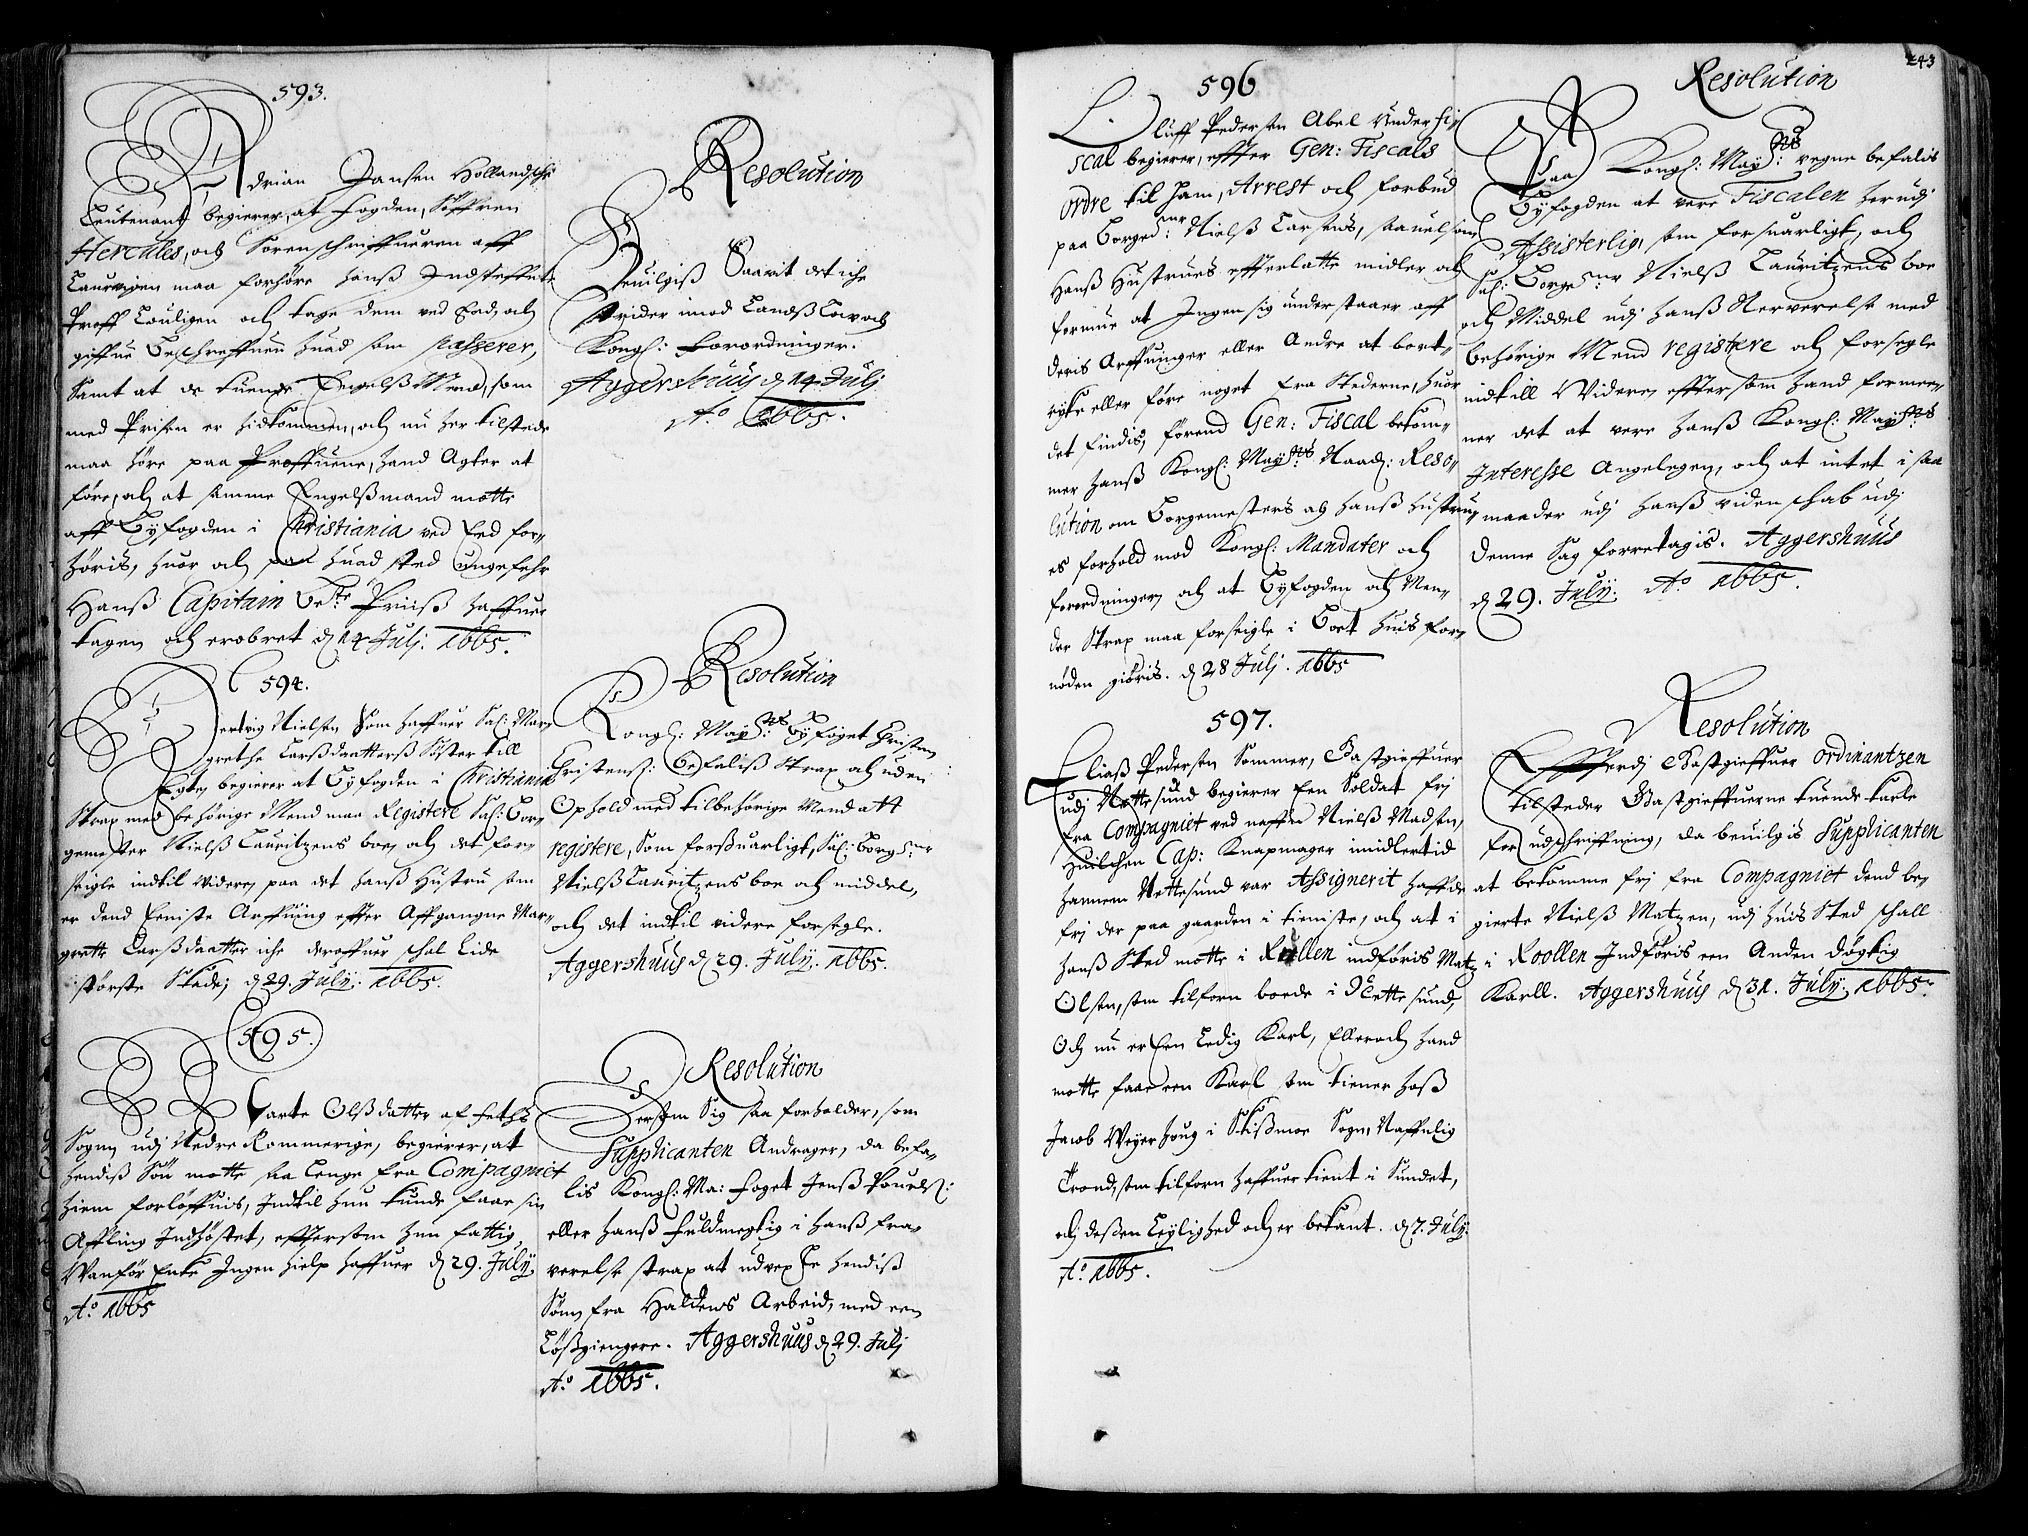 593.
Adrian Jansen Hollandsche
Leutenant begierer, at fogden, Söffren
Hercules, och Sorenschriffueren aff
Laurwigen maa forhöre hanß Indsteffnte
Proff Louligen och tage dem ved Eed, och
giffue beschreffuen huad som passerer,
Samt at de tuenge Engelß Mend, som
med Prisen er hidkommen, och nu her tilstede
maa höre paa Proffuene, hand Agter at
före, och at samme Engelßmand motte
aff Byfogden i Christiania ved Eed for-
höris, huor och paa huad sted ungefehr
Hanß Capitain Prüß haffuer
tagen och erobret d 14 Julj. 1665.
Resolution
Beuilgiß Saavit det iche
strider imod Landß Lov och
Kongl: Forordninger.
Aggershuus d 14 Julj
Ao 1665.
594.
Hertvig Nielsen Som haffuer Sal: Mar-
grethe Larßdaatterß Söster till
Egte begierer at Byfogden i Christiania
Strax med behörige Mend maa Registere Sal: Bor-
gemester Nielß Lauritzens boe, och det for-
seigle indtil videre, paa det hanß Hustru som
er dend Eeniste Arffuing effter Affgangne Mar-
grette Larßdaatter iche deroffuer schal Lide
störste Skade, d 29. July. 1665.
Resolution
Kongl: Mayts Byfoget Christen
Christenß: Befaliß Strax och uden
Ophold med tilbehörige Mend att
registere, Som forßuarligt, Sal: Borgemr
Nielß Lauritzens boe och middel,
och det indtil videre forsegle.
Aggershuus d 29. July. 1665.
595.
Marte Olßdatter af Fethß
Sogn udj Nedre Rommerige, begierer, at
hendiß Sön motte saa Lenge fra Compagniet
hiem forlöffuis, Indtil hun kunde faae sin
Affling Indhöstet, efftersom hun fattig,
Wanför Encke Ingen hielp haffuer d 29. July
Ao 1665
Resolution
Dersom Sig saa forholder, som
Supplicanten Andrager, da befa-
lis Kongl: Ma: foget Jenß Pourelß:
eller hanß fuldmegtig i hanß fra-
verelse strax at udvexle hendiß
Sön, fra Haldens Arbeid, med een
Lößgiengere. Aggershuus d 29. Julj
Ao 1665.
243
596
Oluff Pedersen Abel Underfi-
scal begierer, effter Gen: Fiscals
ordre til ham, Arrest och forbud
paa Borgemr: Nielß Larsens, saauelsom
Hanß Hustrues effterlatte midler och
formue at Ingen sig understaaer aff
deris Arffuinger eller Andre at bort-
rycke eller före noget fra Stederne, huor
det findis, förend Gen: Fiscal bekom-
mer hanß Kongl: Mayts Naad: Reso-
lution om Borgemesters och hanß hustru-
es forhold mod Kongl: Mandater och
forordninger, och at Byfogden och Men-
der Strax maa forseigle i Boet huis for-
nöden giöris. d 28 Julj. 1665
Resolution
Paa Kongl: Mayts: vegne befalis
Byfogden at vere Fiscalen herudj
Assisterlig, som forsuarligt, och
Sal: Borgemr Nielß Lauritzens boe
och Middel udj hanß Nerverelse med
behörige Mend registere och forsegle
indtill Videre, effter som hand formee-
ner det at vere hanß Kongl: Mayts:
Interesse Angelegen, och at intet i saa
maader udj hanß videnschab udj
denne Sag forretagis. Aggershuus
d 29. July. Ao 1665.
597.
Eliaß Pedersen Sommer, Gastgieffuer
udj Nettesund begierer Een Soldat frj
fra Compagniet ved naffn Nielß Madsen,
Huilchen Cap: Knapmager imidlertid
hannem Nettesund var Assignerit haffde
frj der paa gaarden i tieniste, och at i
hanß Sted motte i Rollen indföris Matz
Olsen, som tilforn boede i Nettesund,
Och nu er Een Ledig Karl, Eller och hand
motte faae een Karl som tiener hoß
Jacob Weyerhoug i Skißmoe Sogn, Naffnlig
Trond, som tilforn haffuer tient i Sundet,
och deßen Leylighed och er bekant. d 7. July.
Ao. 1665.
Resolution
Efftterdj Gastgieffuer Ordinantzen
tilsteder Gastgieffuerne tuende karle
for udschriffning, da beuilgis Supplicanten
at bekomme frj fra Compagniet dend be-
gierte Nielß Matzen, udj huis Sted schall
i Roollen Indföris een Anden dögtig
Karll. Aggershuus d 31. July. 1665.